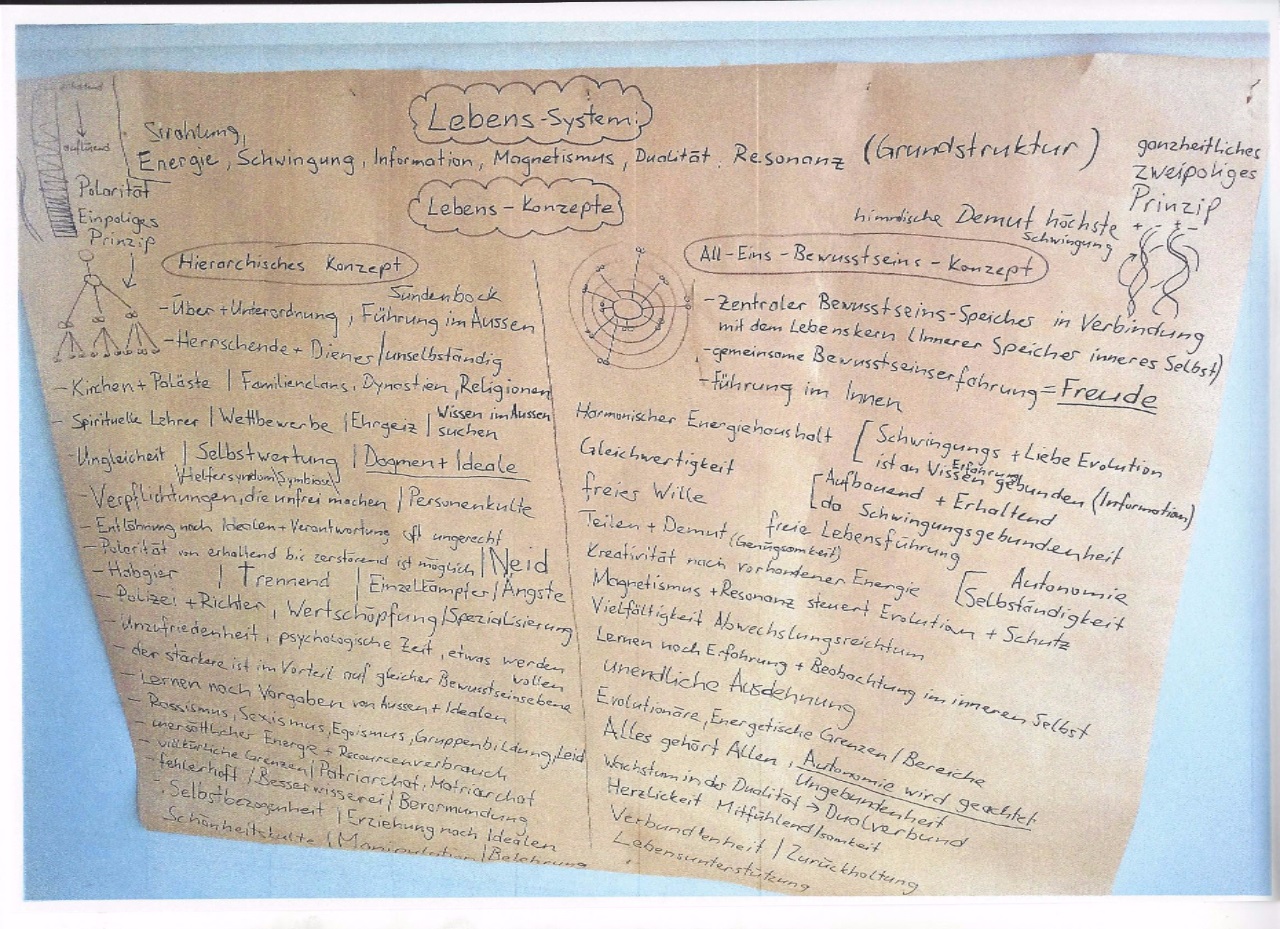 Lebens-System:
Strahlung,
Energie, Schwingung, Information, Magnetismus, Dualität, Resonanz (Grundstruktur)
Lebens-Konzepte
auflösend
Polarität
Einpoliges
Prinzip
ganzheitliches
zweipoliges
Prinzip
+ - + -
himmlische Demut höchste
Schwingung
Hierarchisches Konzept
Sündenbock
-Über+Unterordnung, Führung im Aussen
-Herrschende+Dienes/unselbständig
-Kirchen+Paläste | Familienclans, Dynastien, Religionen
- Spirituelle Lehrer | Wettbewerbe | Ehrgeiz | Wissen im Aussen
suchen
-Ungleichheit | Selbstwertung | Dogmen+Ideale
\Helfersyndom\Symbiose\
-Verpflichtungen, die unfrei machen | Personenkulte
- Entlöhnung nach Idealen+Verantwortung oft ungerecht
- Polarität von erhaltend bis zerstörend ist möglich | Neid
- Habgier | Trennend | Einzelkämpfer / Ängste
- Polizei+Richter, Wertschöpfung/Spezialisierung
- Unzufriedenheit, psychologische Zeit, etwas werden
wollen
- der stärkere ist im Vorteil auf gleicher Bewusstseinsebene
- Lernen nach Vorgaben von Aussen+Idealen
- Rassismus, Sexismus, Egoismus, Gruppenbildung, Leid
- unersättlicher Energie+Recourcenverbrauch
- willkürliche Grenzen / Patriarchat, Matriarchat
- fehlerhaft / Besserwisserei / Bevormundung
- Selbstbezogenheit | Erziehung nach Idealen
Schönheitskulte | Manipulation | Belehrung
All-Eins-Bewusstseins-Konzept
-Zentraler Bewusstseins-Speicher in Verbindung
mit dem Lebenskern (Innerer Speicher inneres Selbst)
-gemeinsame Bewusstseinserfahrung = Freude
-Führung im Innen
Harmonischer Energiehaushalt
[Schwingungs + Liebe Evolution
Erfahrung
ist an Wissen gebunden (Information)
Gleichwertigkeit
freies Wille
[Aufbauend + Erhaltend
da Schwingungsgebundenheit
Teilen + Demut freie Lebensführung
(Genügsamkeit)
Kreativität nach vorhandener Energie
[Autonomie
Selbständigkeit
Magnetismus+Resonanz steuert Evolution + Schutz
Vielfältigkeit Abwechslungsreichtum
Lernen nach Erfahrung + Beobachtung im inneren Selbst
unendliche Ausdehnung
Evolutionäre, Energetische Grenzen / Bereiche
Alles gehört Allen, Autonomie wird geachtet
Ungebundenheit
Wachstum in der Dualität → Dualverbund
Herzlickeit Mitfühlend/samkeit
Verbundenheit / Zurückhaltung
Lebensunterstützung